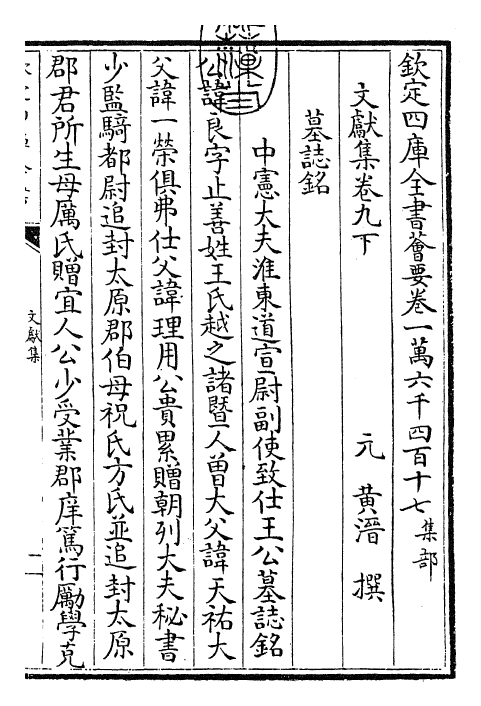 欽定四庫全書薈要卷一萬六千四百十七集部
文獻集卷九下
元 黃溍 撰
墓誌銘
中憲大夫淮東道宣慰副使致仕王公墓誌銘
公諱良字止善姓王氏越之諸暨人曾大父諱天祐大
父諱一榮俱弗仕父諱理用公貴累贈朝列大夫秘書
少監騎都尉追封太原郡伯母祝氏方氏並追封太原
郡君所生母厲氏贈宜人公少受業郡庠篤行勵學克
文獻集
一